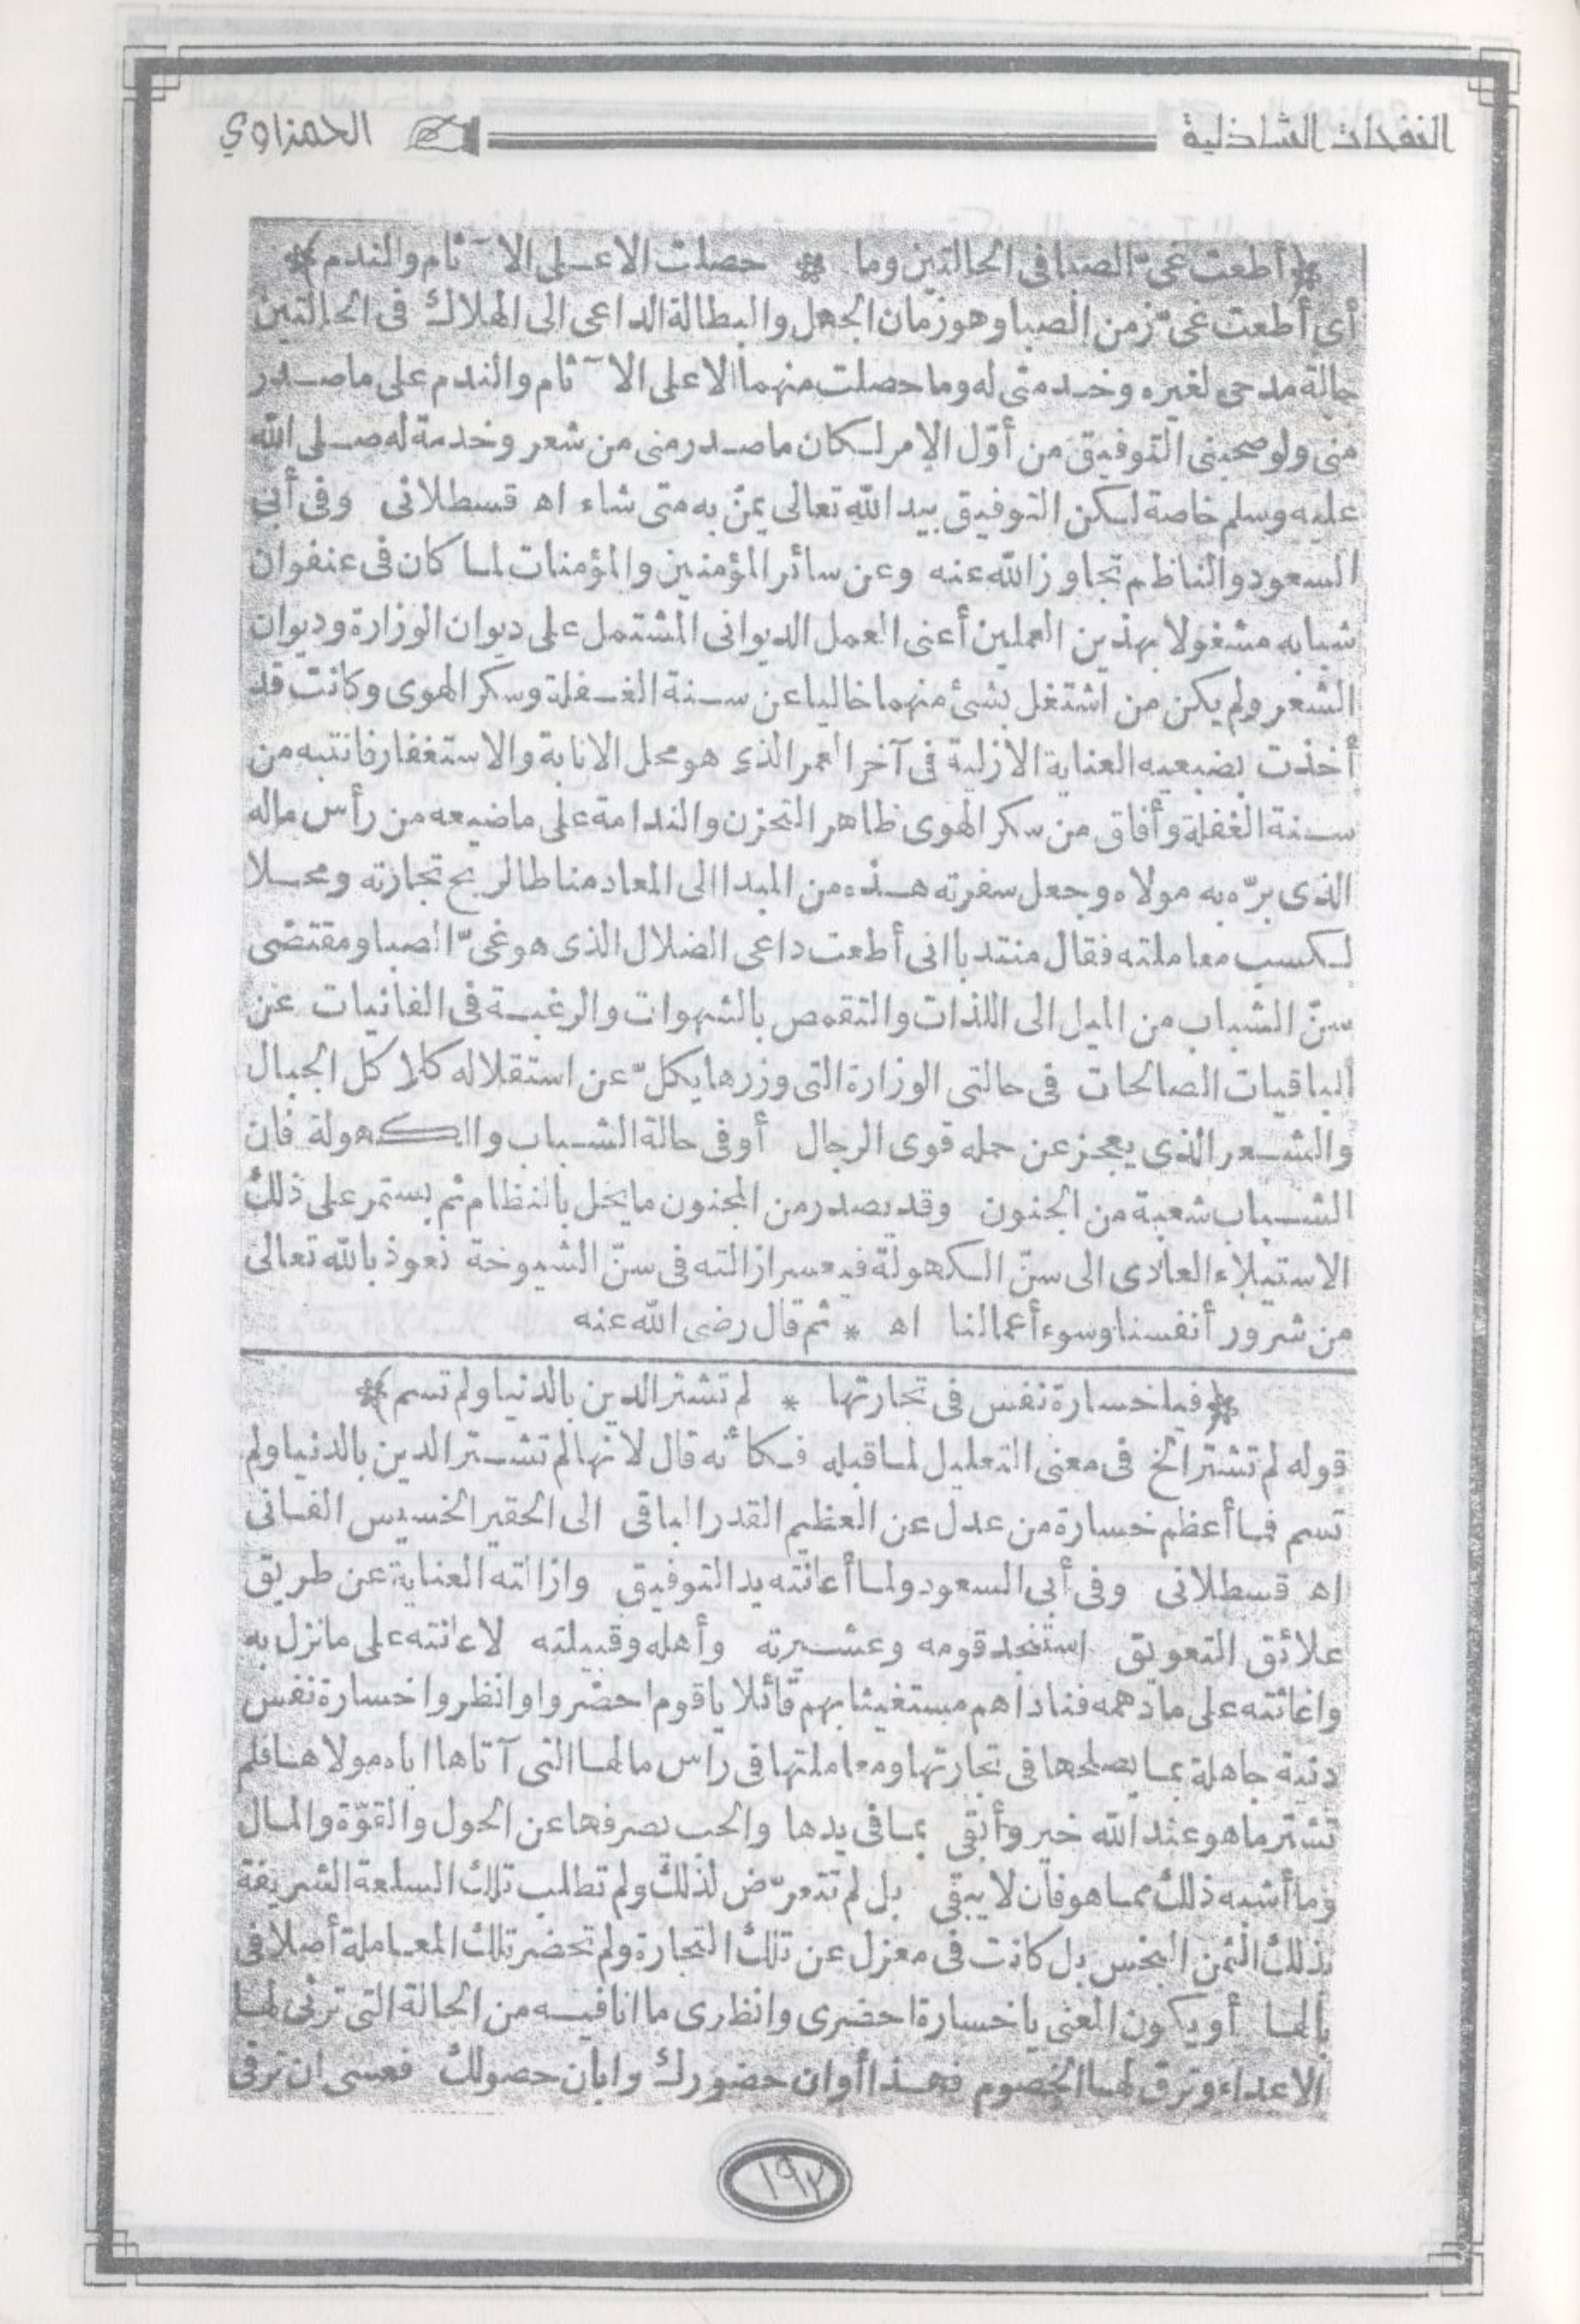 النفحات الشاذلية
الحمزاوي
﴿أطعت غىّ الصبا فى الحالتين وما * حصلت الا على الا ٓثام والندم﴾
أى أطعت غىّ زمن الصبا وهو زمان الجهل والبطالة الداعى الى الهلاك فى الحالتين
حالة مدحى لغيره وخدمتى له وما حصلت منهما الا على الا ٓثام والندم على ما صدر
منى ولو صحبنى التوفيق من أوّل الامر لكان ما صدر منى من شعر وخدمة له صلى الله
عليه وسلم خاصة لكن التوفيق بيد الله تعالى يمنّ به متى شاء اه قسطلانى وفى أبى
السعود والناظم تجاوز الله عنه وعن سائر المؤمنين والمؤمنات لما كان فى عنفوان
شبابه مشغولا بهذين العملين أعنى العمل الديوانى المشتمل على ديوان الوزارة وديوان
الشعر ولم يكن من اشتغل بشئ منهما خاليا عن سنة الغفلة وسكر الهوى وكانت قد
أخذت بضبعيه العناية الازلية فى آخر العمر الذى هو محل الانابة والاستغفار فانتبه من
سنة الغفلة وأفاق من سكر الهوى ظاهر التحزن والندامة على ما ضيعه من رأس ماله
الذى برّه به مولاه وجعل سفرته هذه من المبدا الى المعاد مناطا لربح تجارته ومحلا
لكسب معاملته فقال منتدبا انى أطعت داعى الضلال الذى هو غىّ الصبا ومقتضى
سنّ الشباب من الميل الى اللذات والتقمص بالشهوات والرغبة فى الفانيات عن
الباقيات الصالحات فى حالتى الوزارة التى وزرها يكلّ عن استقلاله كلا كل الجبال
والشعر الذى يعجز عن حمله قوى الرجال أو فى حالة الشباب والكهولة فان
الشباب شعبة من الجنون وقد يصدر من المجنون ما يخل بالنظام ثم يستمر على ذلك
الاستيلاء العادى الى سنّ الكهولة فيعسر ازالته فى سنّ الشيوخة نعوذ بالله تعالى
من شرور أنفسنا وسوء أعمالنا اه * ثم قال رضى الله عنه
﴿فيا خسارة نفس فى تجارتها * لم تشتر الدين بالدنيا ولم تسم﴾
قوله لم تشتر الخ فى معنى التعليل لما قبله فكأنه قال لانها لم تشتر الدين بالدنيا ولم
تسم فما أعظم خسارة من عدل عن العظيم القدر الباقى الى الحقير الخسيس الفانى
اه قسطلانى وفى أبى السعود ولما أعانته يد التوفيق وازالته العناية عن طريق
علائق التعويق استنجد قومه وعشيرته وأهله وقبيلته لاعانته على ما نزل به
واغاثته على ما دهمه فناداهم مستغيثا بهم قائلا يا قوم احضروا وانظروا خسارة نفس
دنية جاهلة بما يصلحها فى تجارتها ومعاملتها فى رأس مالها التى آتاها اياه مولاها فلم
تشتر ما هو عند الله خير وأبقى بما فى يدها والحب يصرفها عن الحول والقوّة والمال
وما أشبه ذلك مما هو فان لا يبقى بل لم تتعرّض لذلك ولم تطلب تلك السلعة الشريفة
بذلك الثمن البخس بل كانت فى معزل عن تلك التجارة ولم تحضر تلك المعاملة أصلا فى
بالها أو يكون المعنى يا خسارة احضرى وانظرى ما انا فيه من الحالة التى ترثى لها
الاعداء وترق لها الخصوم فهذا أوان حضورك وابان حصولك فعسى ان ترقى
١٩٣